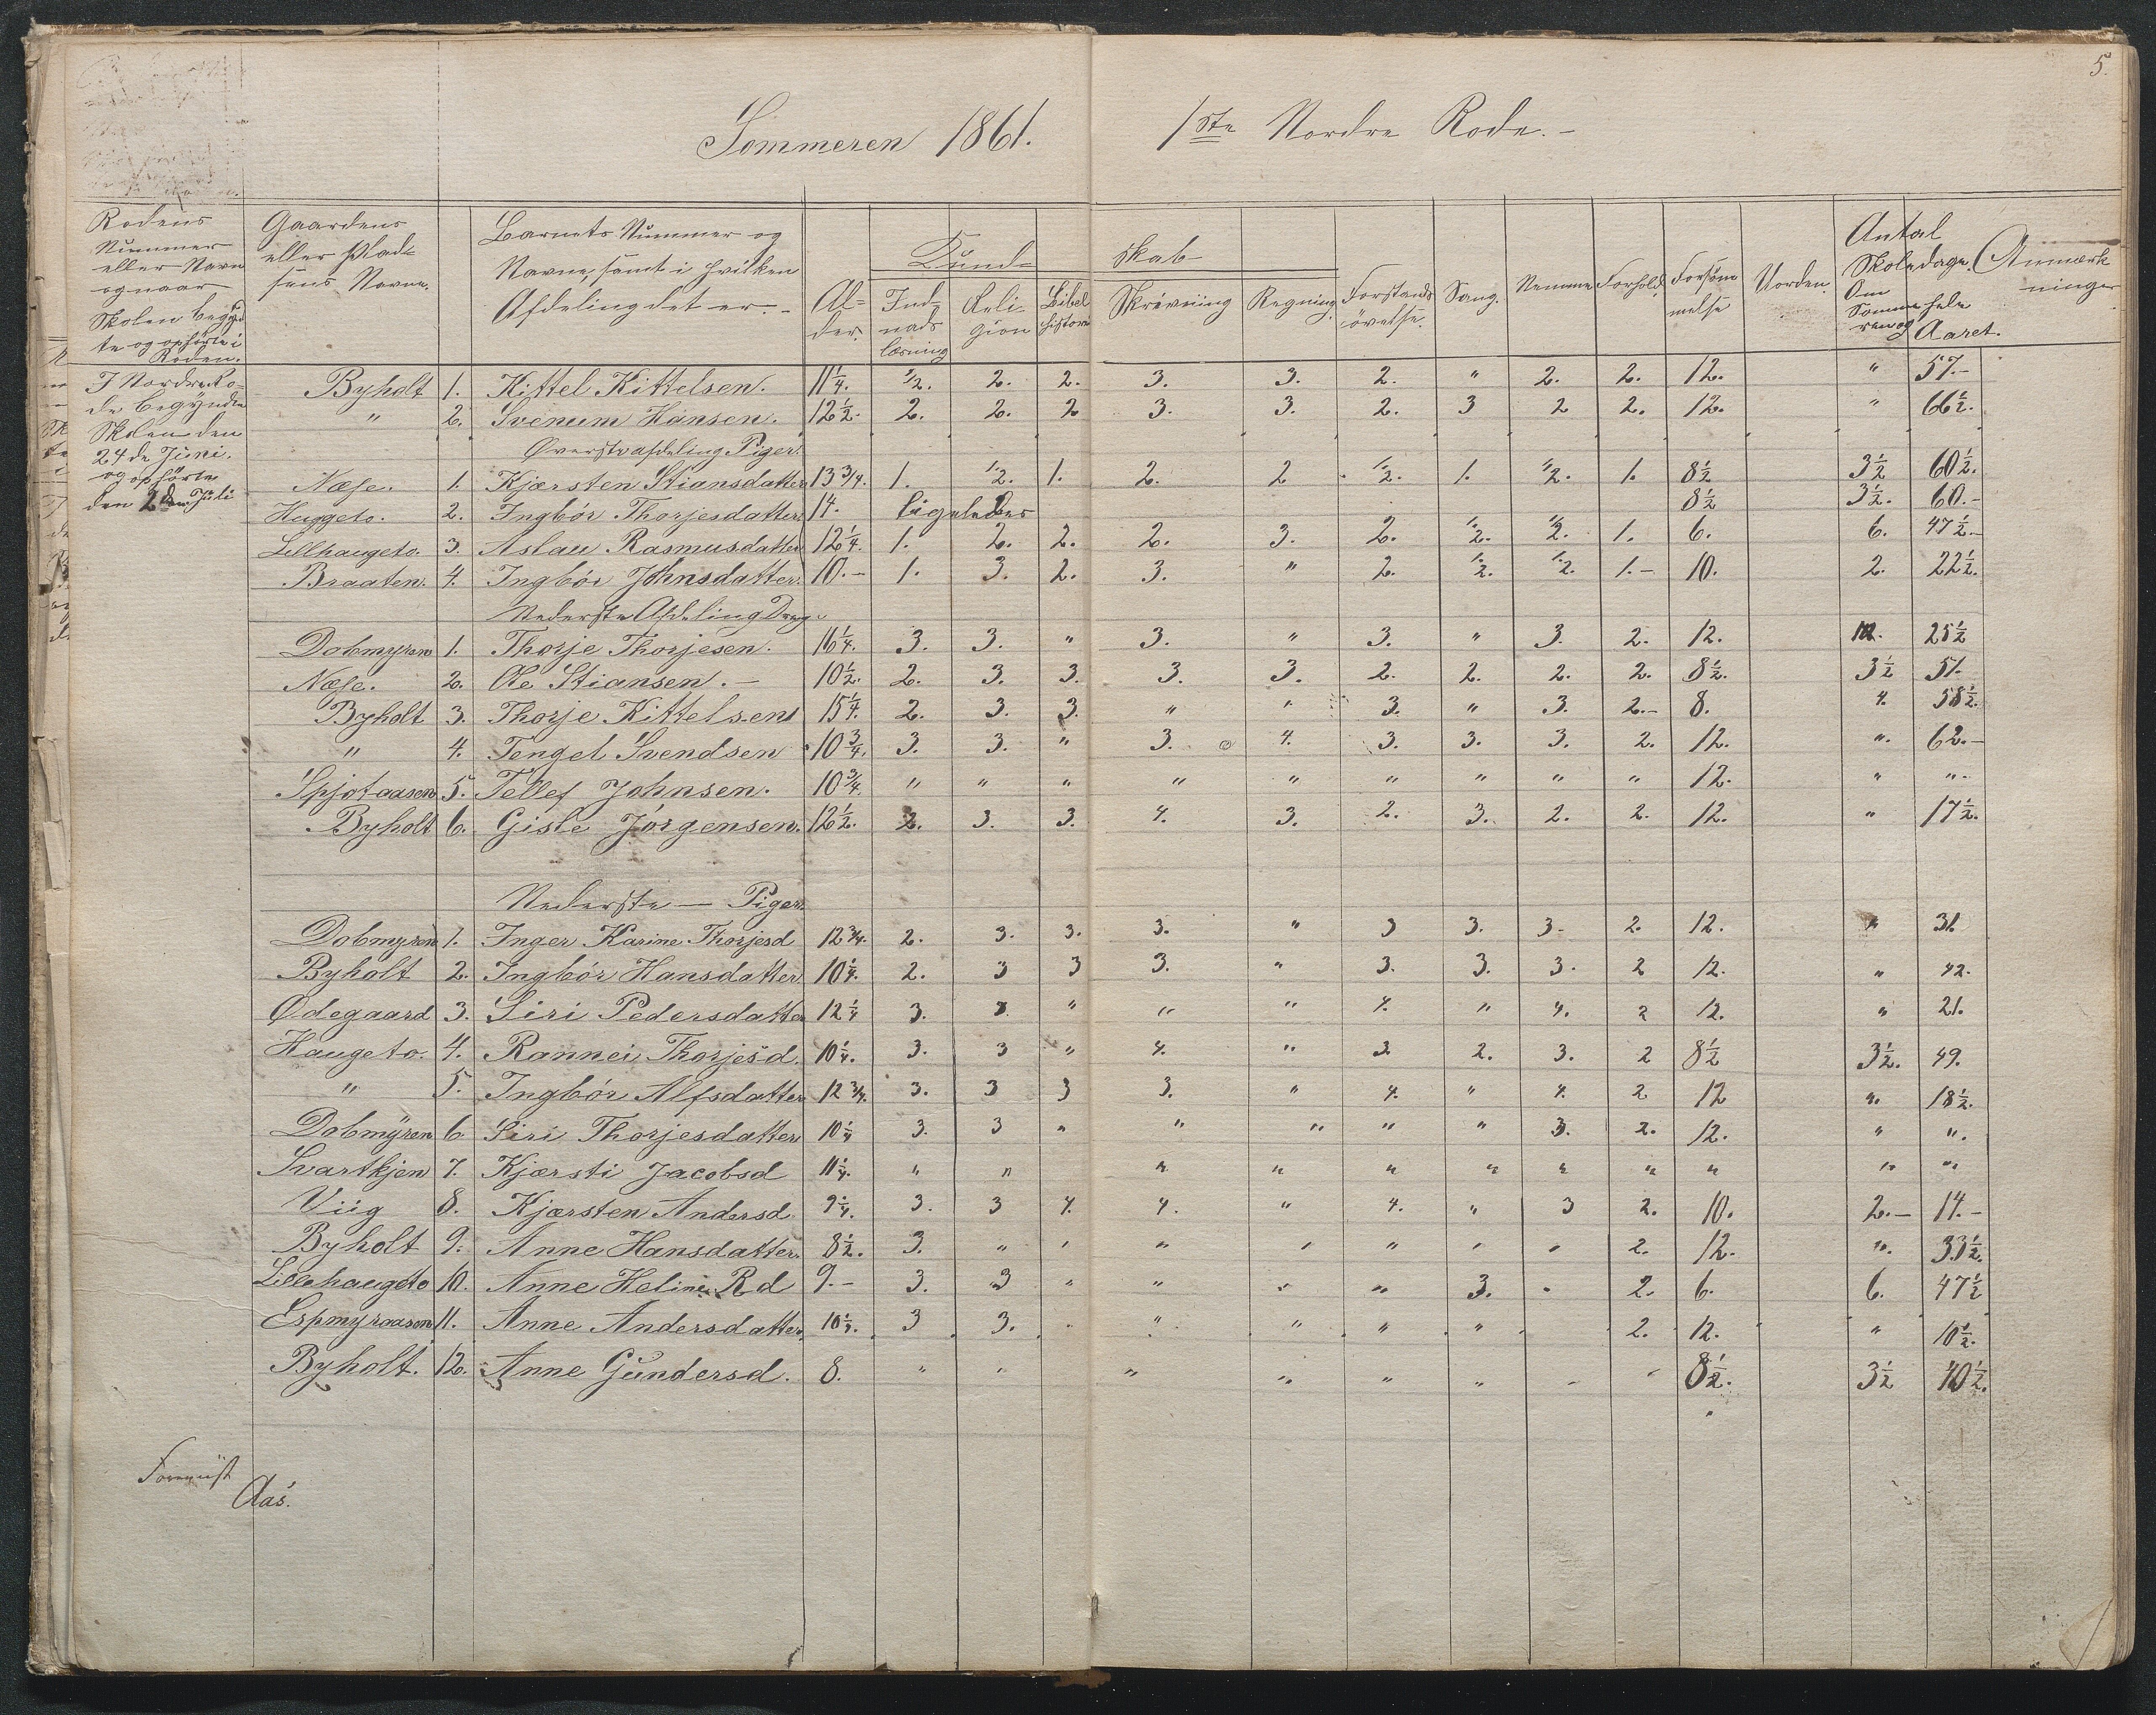 5.
Sommeren 1861. 1ste Nordre Rode. -
Rodens Nummer eller Navn og naar Skolen begynd te og ophörte i Roden.
Gaardens eller Plad= sens Navne.
Barnets Nummer og Navne, samt i hvilken Afdeling det er. -
Al= der.
Kund= skab
Ind= nads læsning
Reli= gion
Bibel historie
Skrivning
Regning.
Forstands övelse.
Sang.
Nemme
Forhold.
Forsöm melse
Uorden.
Antal Skoledage. Om Somme ren og hele Aaret.
Anmærk ninger
I Nordre Ro=
de begÿndte
Skolen den
24de Juni.
og ophörte
den 2den Juli
Byholt 1. Kittel Kittelsen. 11 1/4. 1/2. 2. 2. 3. 3. 2. " 2. 2. 12. " 57.-
" 2. Svenum Hansen. 12 1/2. 2. 2. 2 3. 3. 2. 3 2 2. 12. " 66 1/2.
Øverste afdeling Piger.
Næse. 1. Kjærsten Stiansdatter 13 3/4. 1. 1/2. 1. 2. 2 1/2. 1. 1/2. 1. 8 1/2 3 1/2 60 1/2.
Huggeto. 2. Ingbör Thorjesdatter 14. ligeledes 8 1/2 3 1/2. 60.-
Lillhaugeto. 3. Aslau Rasmusdatter 12 1/4. 1. 2. 2. 2. 3. 2. 1/2. 1/2. 1. 6. 6. 47 1/2.-
Braaten. 4. Ingbör Johnsdatter 10.- 1. 3. 2. 3. " 2. 1/2. 1/2. 1.- 10. 2. 22 1/2.
Nederste Afdeling Dreng.
Dobmyren 1. Thorje Thorjesen. 16 1/4. 3. 3. " 3. " 3. " 3. 2. 12. 25 1/2
Næse. 2. Ole Stiansen. - 10 1/2. 2. 3. 3. 3. 3. 2. 2. 2. 2. 8 1/2. 3 1/2 51.
Byholt 3. Thorje Kittelsen 15 1/4. 2. 3. 3. " " 3. " 3. 2.- 8. 4. 58 1/2.
" 4. Tengel Svendsen 10 3/4. 3. 3. " 3. 4. 3. 3. 3. 2. 12. ". 62.-
Spjotaasen 5. Tellef Johnsen. 10 3/4. " " " " " " " " " 12. " "
Byholt 6. Gisle Jörgensen. 12 1/2. 2. 3. 3. 4. 3. 2. 3. 2. 2. 12. " 17 1/2.
Nederste — Piger.
Dobmyren 1. Inger Karine Thorjesd 12 3/4. 2. 3. 3. 3. " 3 3. 3- 2. 12. " 31
Byholt 2. Ingbör Hansdatter 10 1/4. 2. 3 3 3. " 3. 3. 3. 2 12. " 42.
Ødegaard 3. Siri Pedersdatter 12 1/4 3. 3. " " " 4. " 4. 2 12. " 21.
Haugeto. 4. Rannei Thorjesd. 10 1/4. 3. 3 " 4. " 3 2. 3. 2 8 1/2 3 1/2. 49.
" 5. Ingbör Alfsdatter 12 3/4. 3. 3 3 3. " 4. " 4. 2 12 ". 18 1/2.
Dobmÿren 6. Siri Thorjesdatter 10 1/4 3. 3 " " " " " 3. 2. 12. " ".
Svartkjen 7. Kjærsti Jacobsd 11 1/4. " " " " " " " " " " "
Viig 8. Kjærsten Andersd 9 1/4. 3. 3 4. 4. " 4. " 3 2. 10. 2.- 14.-
Byholt 9. Anne Hansdatter. 8 1/2. 3. " " " " " " " 2. 12. ". 33 1/2.
Lillehaugeto 10. Anne Heline R.d 9.- 3. 3 " " " " 3. " 2. 6. 6. 47 1/2
Espmyraasen 11. Anne Andersdatter 10 1/4. 3 3. " " " " " 2. 12. " 10 1/2.
Byholt. 12. Anne Gundersd. 8. " " " " " " " " 8 1/2. 3 1/2 40 1/2.
Aas.